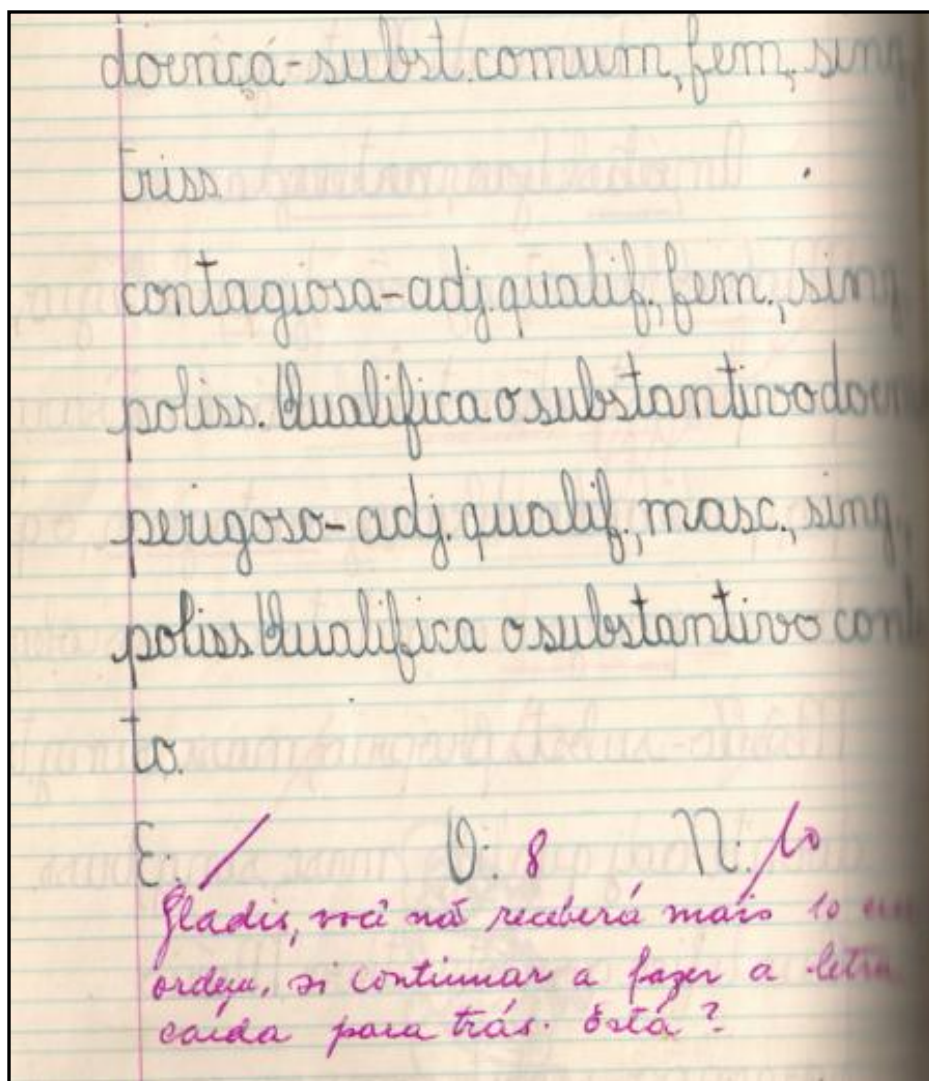 doença-subst. comum, fem., sing
triss.
contagiosa-adj. qualif., fem., sing
poliss. Qualifica o substantivo doen
perigoso-adj. qualif., masc., sing.,
poliss Qualifica o substantivo con
to.
E: / O: 8 N: 10
Gladis, você não receberá mais 10 em
ordem, si continuar a fazer a letra
caída para trás. Está?